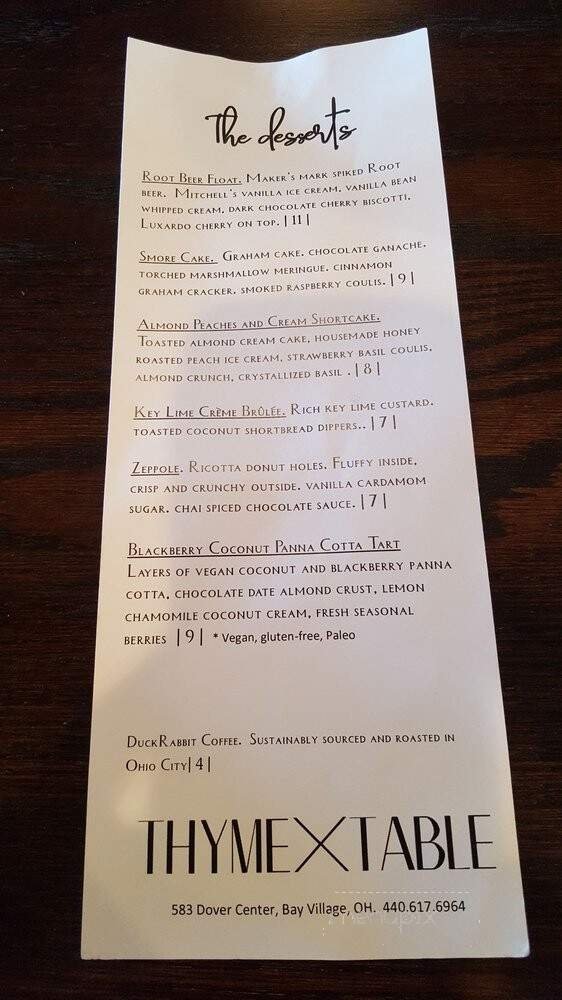 The desserts
Root Beer Float. Maker's mark spiked Root
beer. Mitchell's vanilla ice cream, vanilla bean
whipped cream, dark chocolate cherry biscotti,
Luxardo cherry on top. |11|
Smore Cake. Graham cake. chocolate ganache.
torched marshmallow meringue. cinnamon
graham cracker. smoked raspberry coulis. |9|
Almond Peaches and Cream Shortcake.
Toasted almond cream cake, housemade honey
roasted peach ice cream, strawberry basil coulis,
almond crunch, crystallized basil . |8|
Key Lime Crème Brûlée. Rich key lime custard.
toasted coconut shortbread dippers.. |7|
Zeppole. Ricotta donut holes. Fluffy inside,
crisp and crunchy outside. vanilla cardamom
sugar. chai spiced chocolate sauce. |7|
Blackberry Coconut Panna Cotta Tart
Layers of vegan coconut and blackberry panna
cotta, chocolate date almond crust, lemon
chamomile coconut cream, fresh seasonal
berries |9| * Vegan, gluten-free, Paleo
DuckRabbit Coffee. Sustainably sourced and roasted in
Ohio City|4|
THYMEXTABLE
583 Dover Center, Bay Village, OH. 440.617.6964
menupix